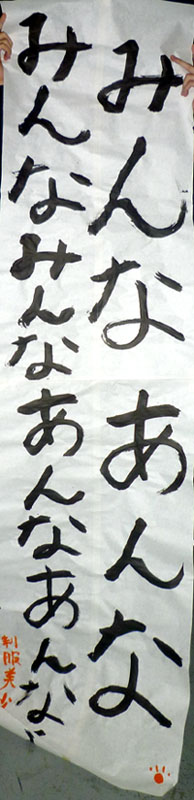 みんなあんな
みんなみんなあんなあんな
制服美